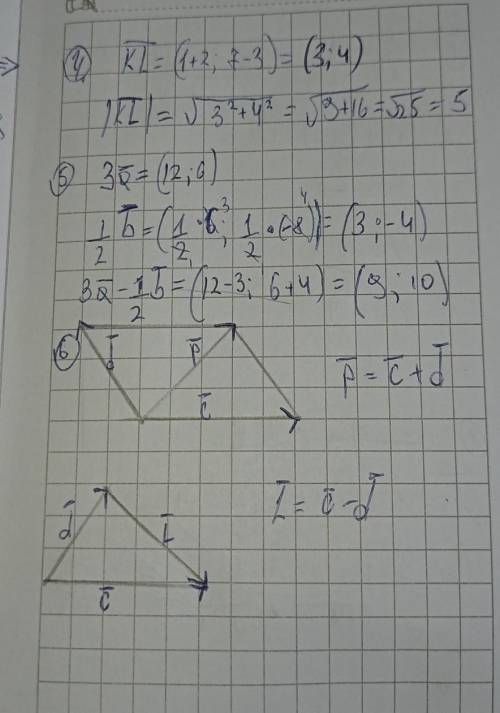 4 K̅L̅ = (1+2; 7-3) = (3; 4)
|K̅L̅| = √3²+4² = √9+16 = √25 = 5
5 3a̅ = (12; 6)
1/2 b̅ = (1/2 · 6³; 1/2 · (-8⁴)) = (3; -4)
3a̅ - 1/2 b̅ = (12-3; 6+4) = (9; 10)
6 d̅ p̅ c̅
p̅ = c̅ + d̅
d̅ L̅ c̅
L̅ = c̅ - d̅